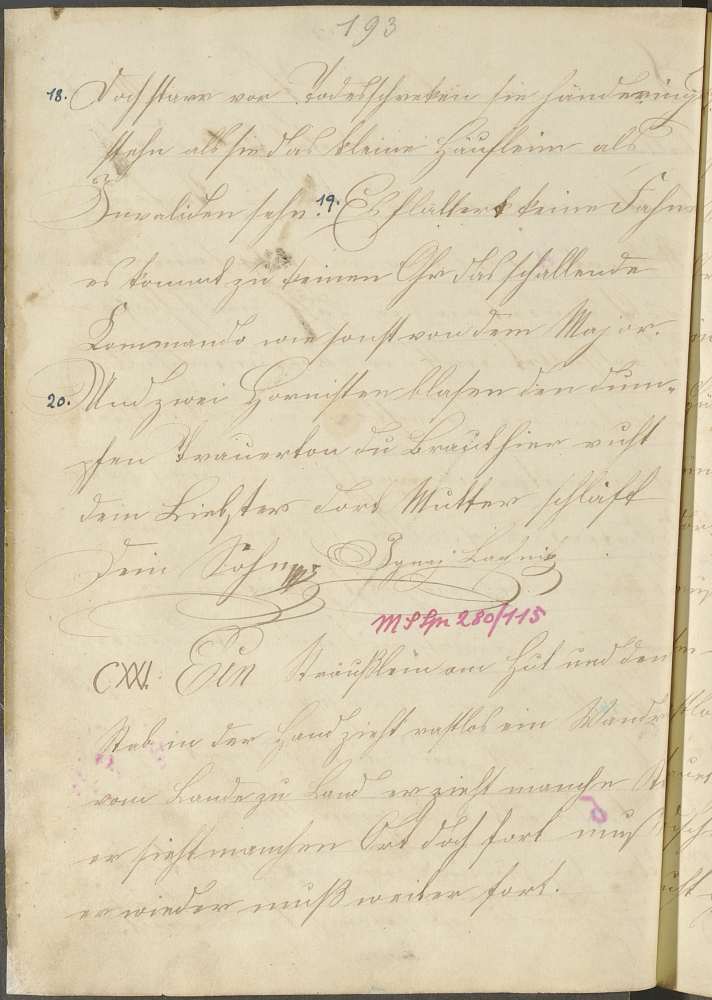 193
18. Doch starr vor Todesschreken sie händering
stehn als sie das kleine Häuflein als
Invaliden sehn. 19. Es flattert keine Fahne
es kommt zu keinen Ohr das schallende
Kommando wie sonst von dem Major.
20. Und zwei Hornisten blasen den dum-
pfen Trauerton du Braut hier ruht
dein Liebster dort Mutter schläft
Dein Sohn.
MS Spr 280/115
CXXI. Ein Sträußlein am Hut und den
Stab in der Hand zieht rastlos ein Wandr
vom Lande zu Land er zieht manche
er sieht manchen Ort doch fort muß
er wieder muß weiter fort.